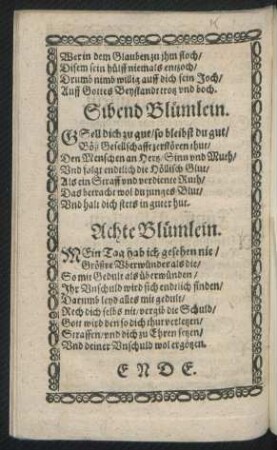 Wer in dem Glauben zu jhm floch/
Disem sein hülff niemals entzoch/
Drumb nimb willig auff dich sein Joch/
Auff Gottes Beystandt trotz vnd boch.
Sibend Blümlein.
GSell dich zu gut/ so bleibst du gut/
Böß Gesellschafft zerstören thut/
Den Menschen an Hertz/ Sinn vnd Muth/
Vnd folgt endtlich die Höllisch Glut/
Als ein Straff vnd verdiente Ruth/
Das betracht wol du junges Blut/
Vnd halt dich stets in guter hut.
Achte Blümlein.
MEin Tag hab ich gesehen nie/
Größre Vberwünder als die/
So mit Gedult als vberwünden/
Ihr Vnschuld wird sich endtlich finden/
Darumb leyd alles mit gedult/
Rech dich selbs nit/ verzib die Schuld/
Gott wird den so dich thut verletzen/
Straffen/ vnd dich zu Ehren setzen/
Vnd deiner Vnschuld wol ergötzen.
E N D E.